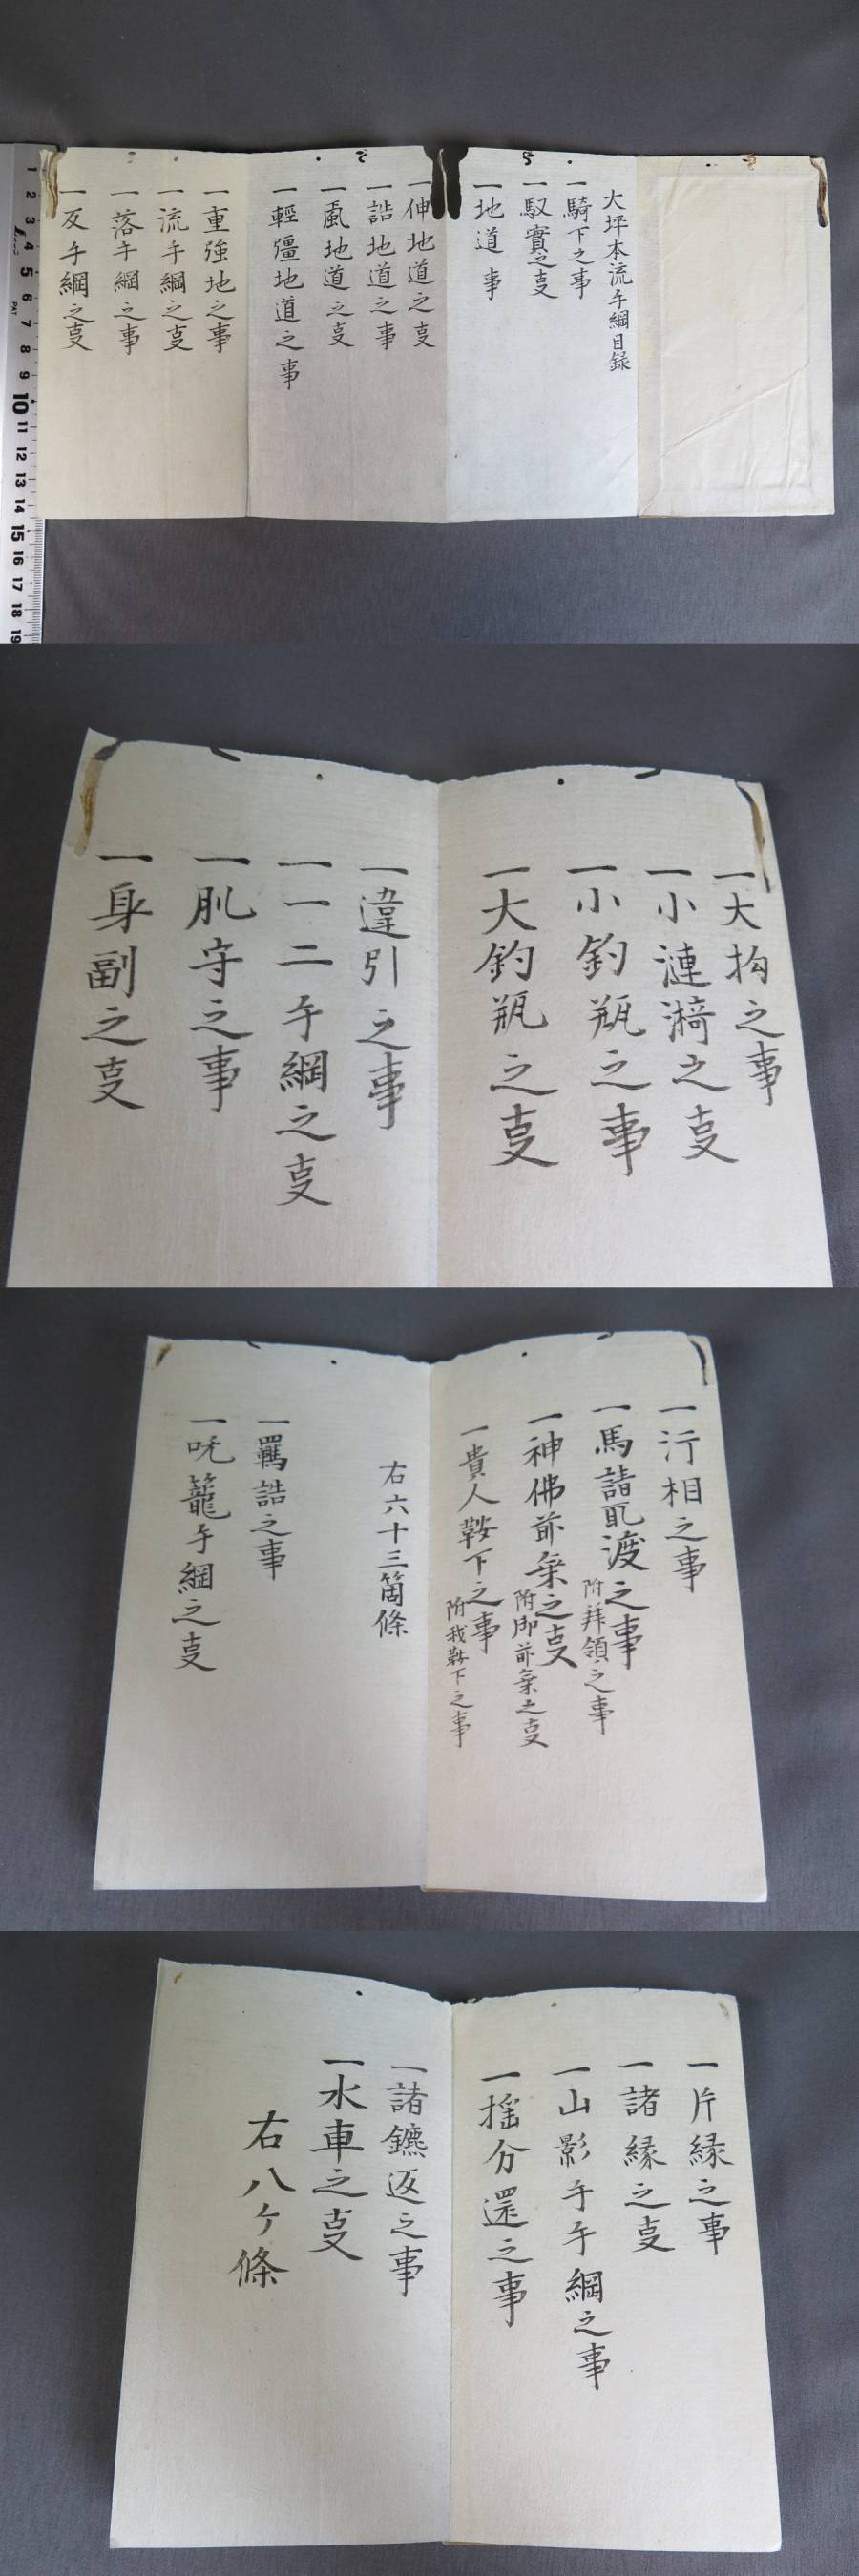 大坪本流手綱目録
一騎下之事
一馭實之㕝
一地道 事
一伸地道之㕝
一詰地道之事
一颪地道之㕝
一輕彊地道之事
一重強地之事
一流手綱之㕝
一落手綱之事
一反手綱之㕝
1 2 3 4 5 6 7 8 9 10 11 12 13 14 15 16 17 18 19
一大拘之事
一小漣漪之㕝
一小釣瓶之事
一大釣瓶之㕝
一違引之事
一一二手綱之㕝
一肌守之事
一身副之㕝
一行相之事
一馬請取渡之事 附拜領之事
一神佛前乗之㕝 附御前乗之㕝
一貴人鞍下之事 附我鞍下之事
右六十三箇條
一羈詰之事
一呪籠手綱之㕝
一片縁之事
一諸縁之㕝
一山影手手綱之事
一揺分還之事
一諸鑣返之事
一水車之㕝
右八ケ條